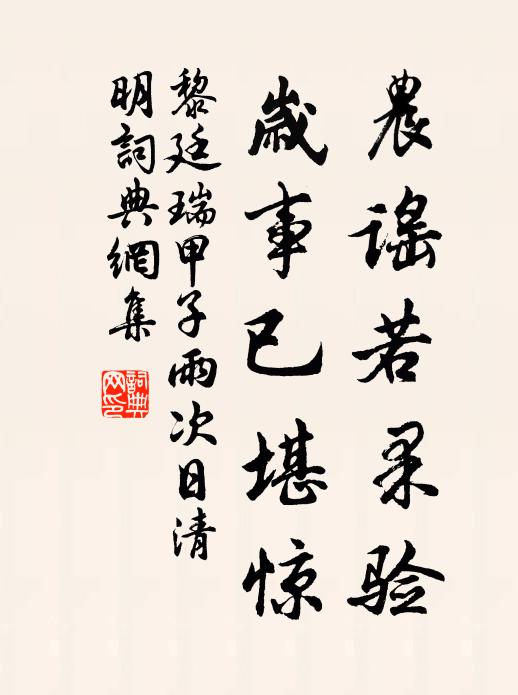 農谣若果验
歲事已堪惊
黎廷瑞甲子雨次日清
明詞典網集
詞典
网印